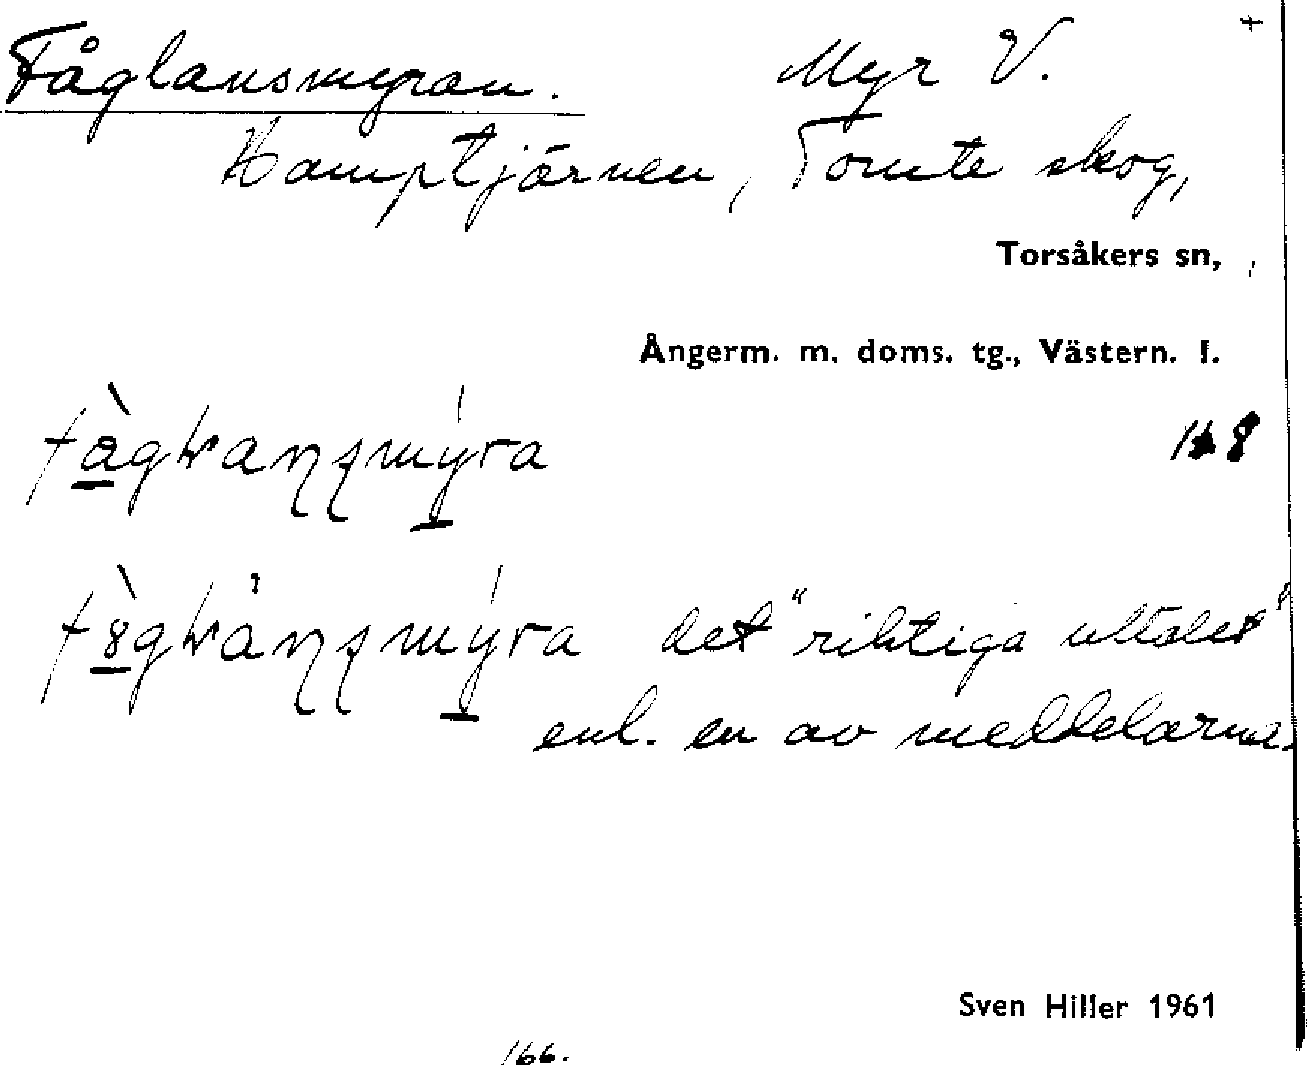 Fåglansmyran. Myr V.
Hamptjärnen, Tomte skog,
Torsåkers sn,
Ångerm. m. doms. tg., Västern. l.
148
det "riktiga uttalet"
enl. en av meddelarna.
Sven Hiller 1961
166.